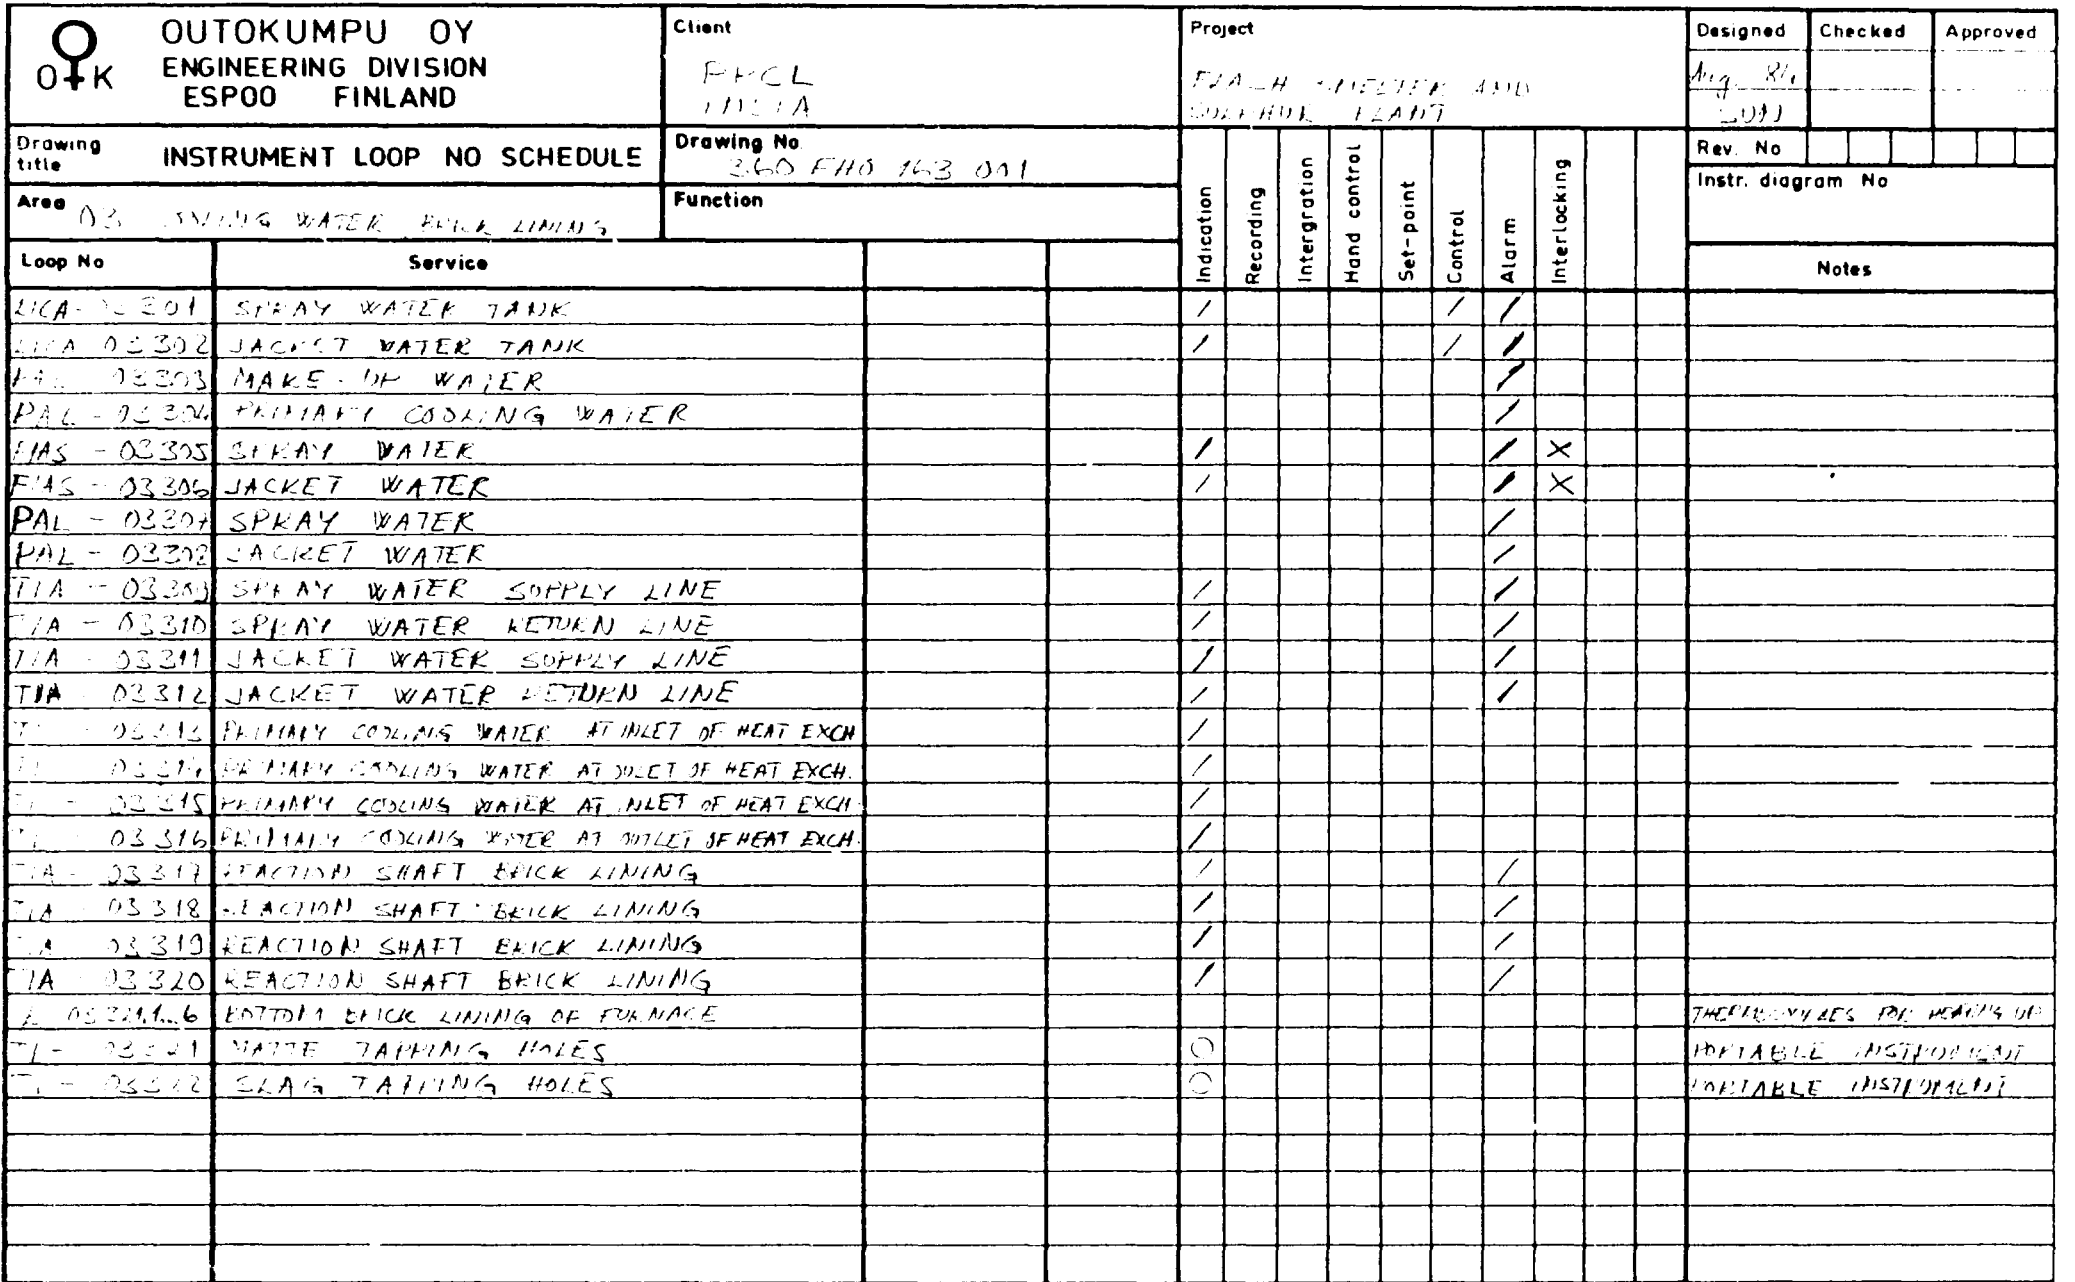 OUTOKUMPU OY
ENGINEERING DIVISION
ESPOO FINLAND
O K
Client
Project
FLASH SMELTER AND
SULPHUR PLANT
Designed Checked Approved
Aug.
Drawing title INSTRUMENT LOOP NO SCHEDULE
Drawing No.
360 FHO 163 001
Rev. No
Instr. diagram No
Area 03 WATER BRICK LINING
Function
Loop No Service Indication Recording Intergration Hand control Set-point Control Alarm Interlocking Notes
LICA- 03301 SPRAY WATER TANK / / /
LICA 03302 JACKET WATER TANK / / /
PAL 03303 MAKE-UP WATER /
PAL - 03304 PRIMARY COOLING WATER /
FIAS - 03305 SPRAY WATER / / X
FIAS - 03306 JACKET WATER / / X
PAL - 03307 SPRAY WATER /
PAL - 03308 JACKET WATER /
TIA - 03309 SPRAY WATER SUPPLY LINE / /
TIA - 03310 SPRAY WATER RETURN LINE / /
TIA - 03311 JACKET WATER SUPPLY LINE / /
TIA 03312 JACKET WATER RETURN LINE / /
TI - 03313 PRIMARY COOLING WATER AT INLET OF HEAT EXCH /
TI 03314 PRIMARY COOLING WATER AT OULET OF HEAT EXCH. /
TI - 03315 PRIMARY COOLING WATER AT INLET OF HEAT EXCH. /
TI 03316 PRIMARY COOLING WATER AT OUTLET OF HEAT EXCH. /
TIA - 03317 REACTION SHAFT BRICK LINING / /
TIA 03318 REACTION SHAFT BRICK LINING / /
TIA 03319 REACTION SHAFT BRICK LINING / /
TIA 03320 REACTION SHAFT BRICK LINING / /
BOTTOM BRICK LINING OF FURNACE THERMOCOUPLES FOR HEATING UP
TI - 03321 MATTE TAPPING HOLES O PORTABLE INSTRUMENT
TI - 03322 SLAG TAPPING HOLES O PORTABLE INSTRUMENT